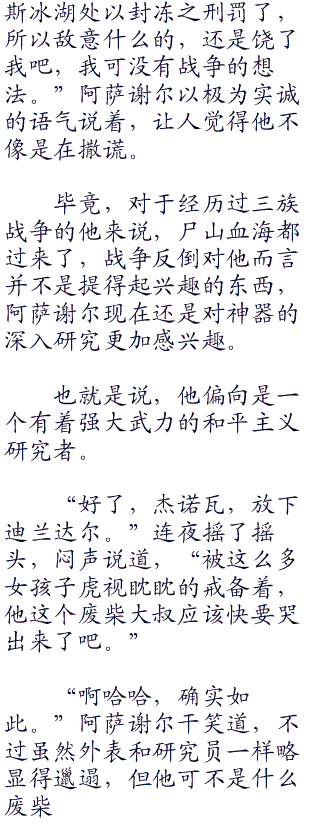 斯冰湖处以封冻之刑罚了，
所以敌意什么的，还是饶了
我吧，我可没有战争的想
法。”阿萨谢尔以极为实诚
的语气说着，让人觉得他不
像是在撒谎。
毕竟，对于经历过三族
战争的他来说，尸山血海都
过来了，战争反倒对他而言
并不是提得起兴趣的东西，
阿萨谢尔现在还是对神器的
深入研究更加感兴趣。
也就是说，他偏向是一
个有着强大武力的和平主义
研究者。
“好了，杰诺瓦，放下
迪兰达尔。”连夜摇了摇
头，闷声说道，“被这么多
女孩子虎视眈眈的戒备着，
他这个废柴大叔应该快要哭
出来了吧。”
“啊哈哈，确实如
此。”阿萨谢尔干笑道，不
过虽然外表和研究员一样略
显得邋遢，但他可不是什么
废柴